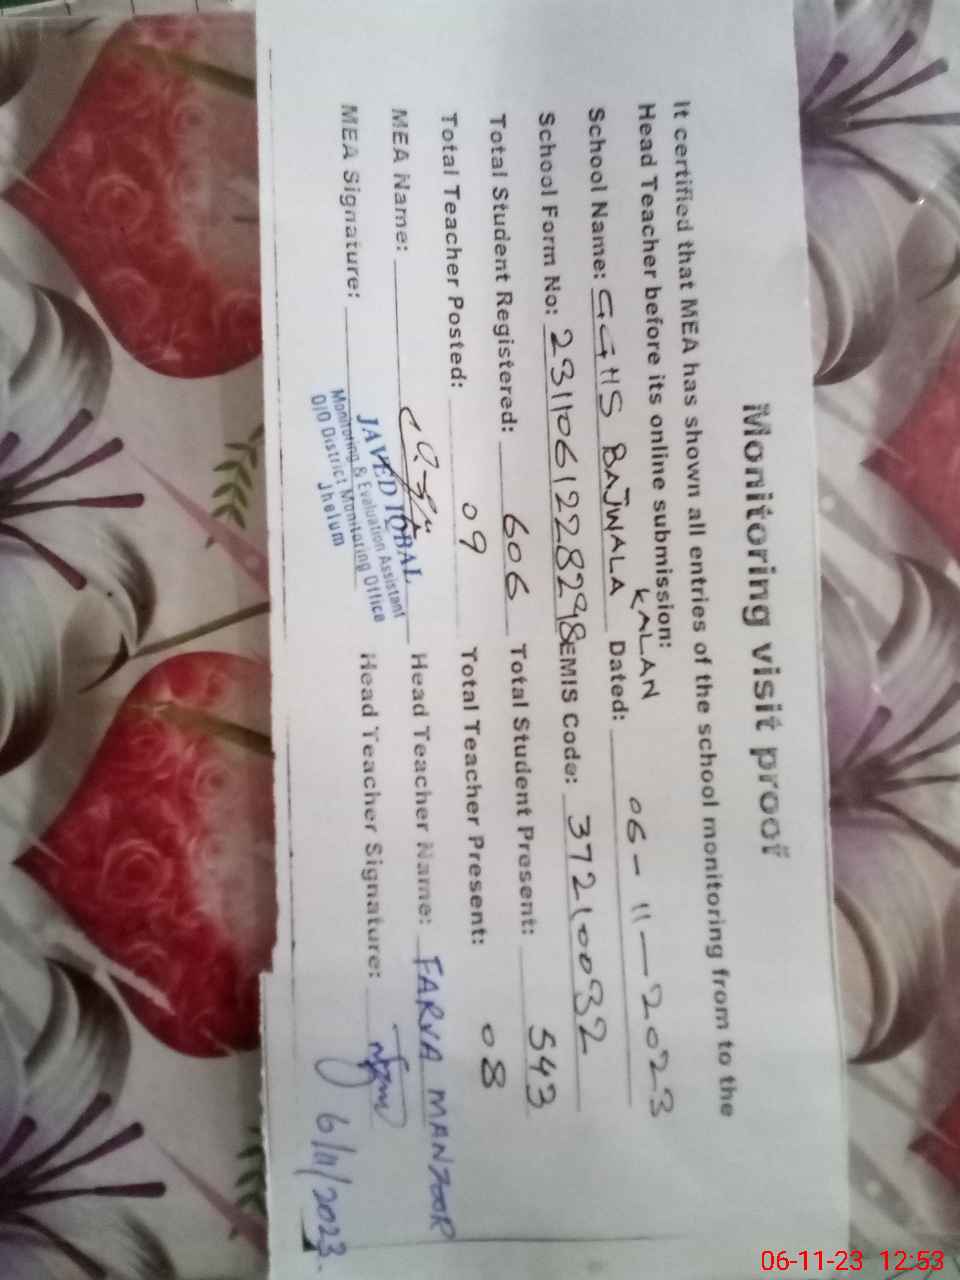 Monitoring visit proof
It certified that MEA has shown all entries of the school monitoring from to the
Head Teacher before its online submission:
School Name: GGHS BAJWALA KALAN Dated: 06-11-2023
School Form No: 2311061228298 EMIS Code: 37210032
Total Student Registered: 606 Total Student Present: 543
Total Teacher Posted: 09 Total Teacher Present: 08
MEA Name: Head Teacher Name: FARVA MANZOOR
MEA Signature: Head Teacher Signature:
JAVED IQBAL
Monitoring & Evaluation Assistant
O/O District Monitoring Office
Jhelum
6/11/2023.
06-11-23 12:53